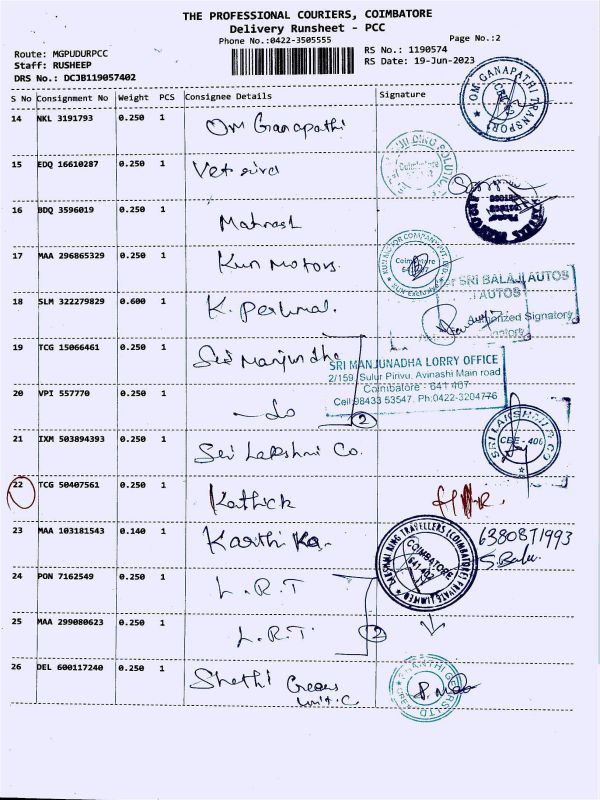 THE PROFESSIONAL COURIERS, COIMBATORE
Delivery Runsheet - PCC
Phone No.:0422-3505555
Page No.:2
Route: MGPUDURPCC
RS No.: 1190574
Staff: RUSHEEP
RS Date: 19-Jun-2023
DRS No.: DCJB119057402
S No Consignment No Weight PCS Consignee Details Signature
14 NKL 3191793 0.250 1 Om Ganapathi
OM GANAPATHI TRANSPORT
15 EDQ 16610287 0.250 1
BUILDING SOLUTION
Coimbatore
16 BDQ 3596019 0.250 1
17 MAA 296865329 0.250 1 Kun Motors.
KUN MOTOR COMPANY PVT. LTD.
Coimbatore
18 SLM 322279829 0.600 1 K. Perumal.
SRI BALAJI AUTOS
AUTOS
Authorized Signatory
19 TCG 15066461 0.250 1 Sri Manjundha
SRI MANJUNADHA LORRY OFFICE
2/159, Sulur Pirivu, Avinashi Main road
Coimbatore - 641 407
Cell:98433 53547. Ph:0422-3204776
20 VPI 557770 0.250 1 -do- 2
21 IXM 503894393 0.250 1 Sri Lakshmi Co.
SRI LAKSHMI & CO
CBE - 406
22 TCG 50407561 0.250 1 Kathick
23 MAA 103181543 0.140 1 Karthi Ka.
LAKSHMI RING TRAVELLERS (COIMBATORE) PRIVATE LIMITED
COIMBATORE
641 402
S. Balu.
24 PON 7162549 0.250 1 L.R.T
25 MAA 299080623 0.250 1 L.R.T. 2
26 DEL 600117240 0.250 1 Shathi Gears
unit.C
SHANTHI GEARS LTD